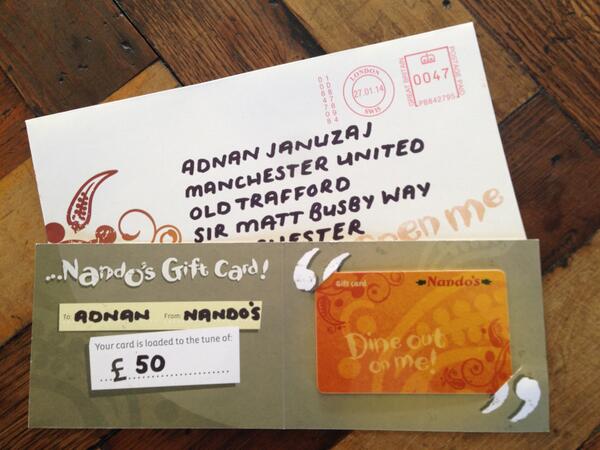 LONDON
27.01.14
SW15
GREAT BRITAIN
0047
POSTAGE PAID
PB842795
ADNAN JANUZAJ
MANCHESTER UNITED
OLD TRAFFORD
SIR MATT BUSBY WAY
open me
...Nando's Gift Card!
To ADNAN From NANDO'S
Your card is loaded to the tune of:
£ 50
Gift card
Nando's
Dine out
on me!